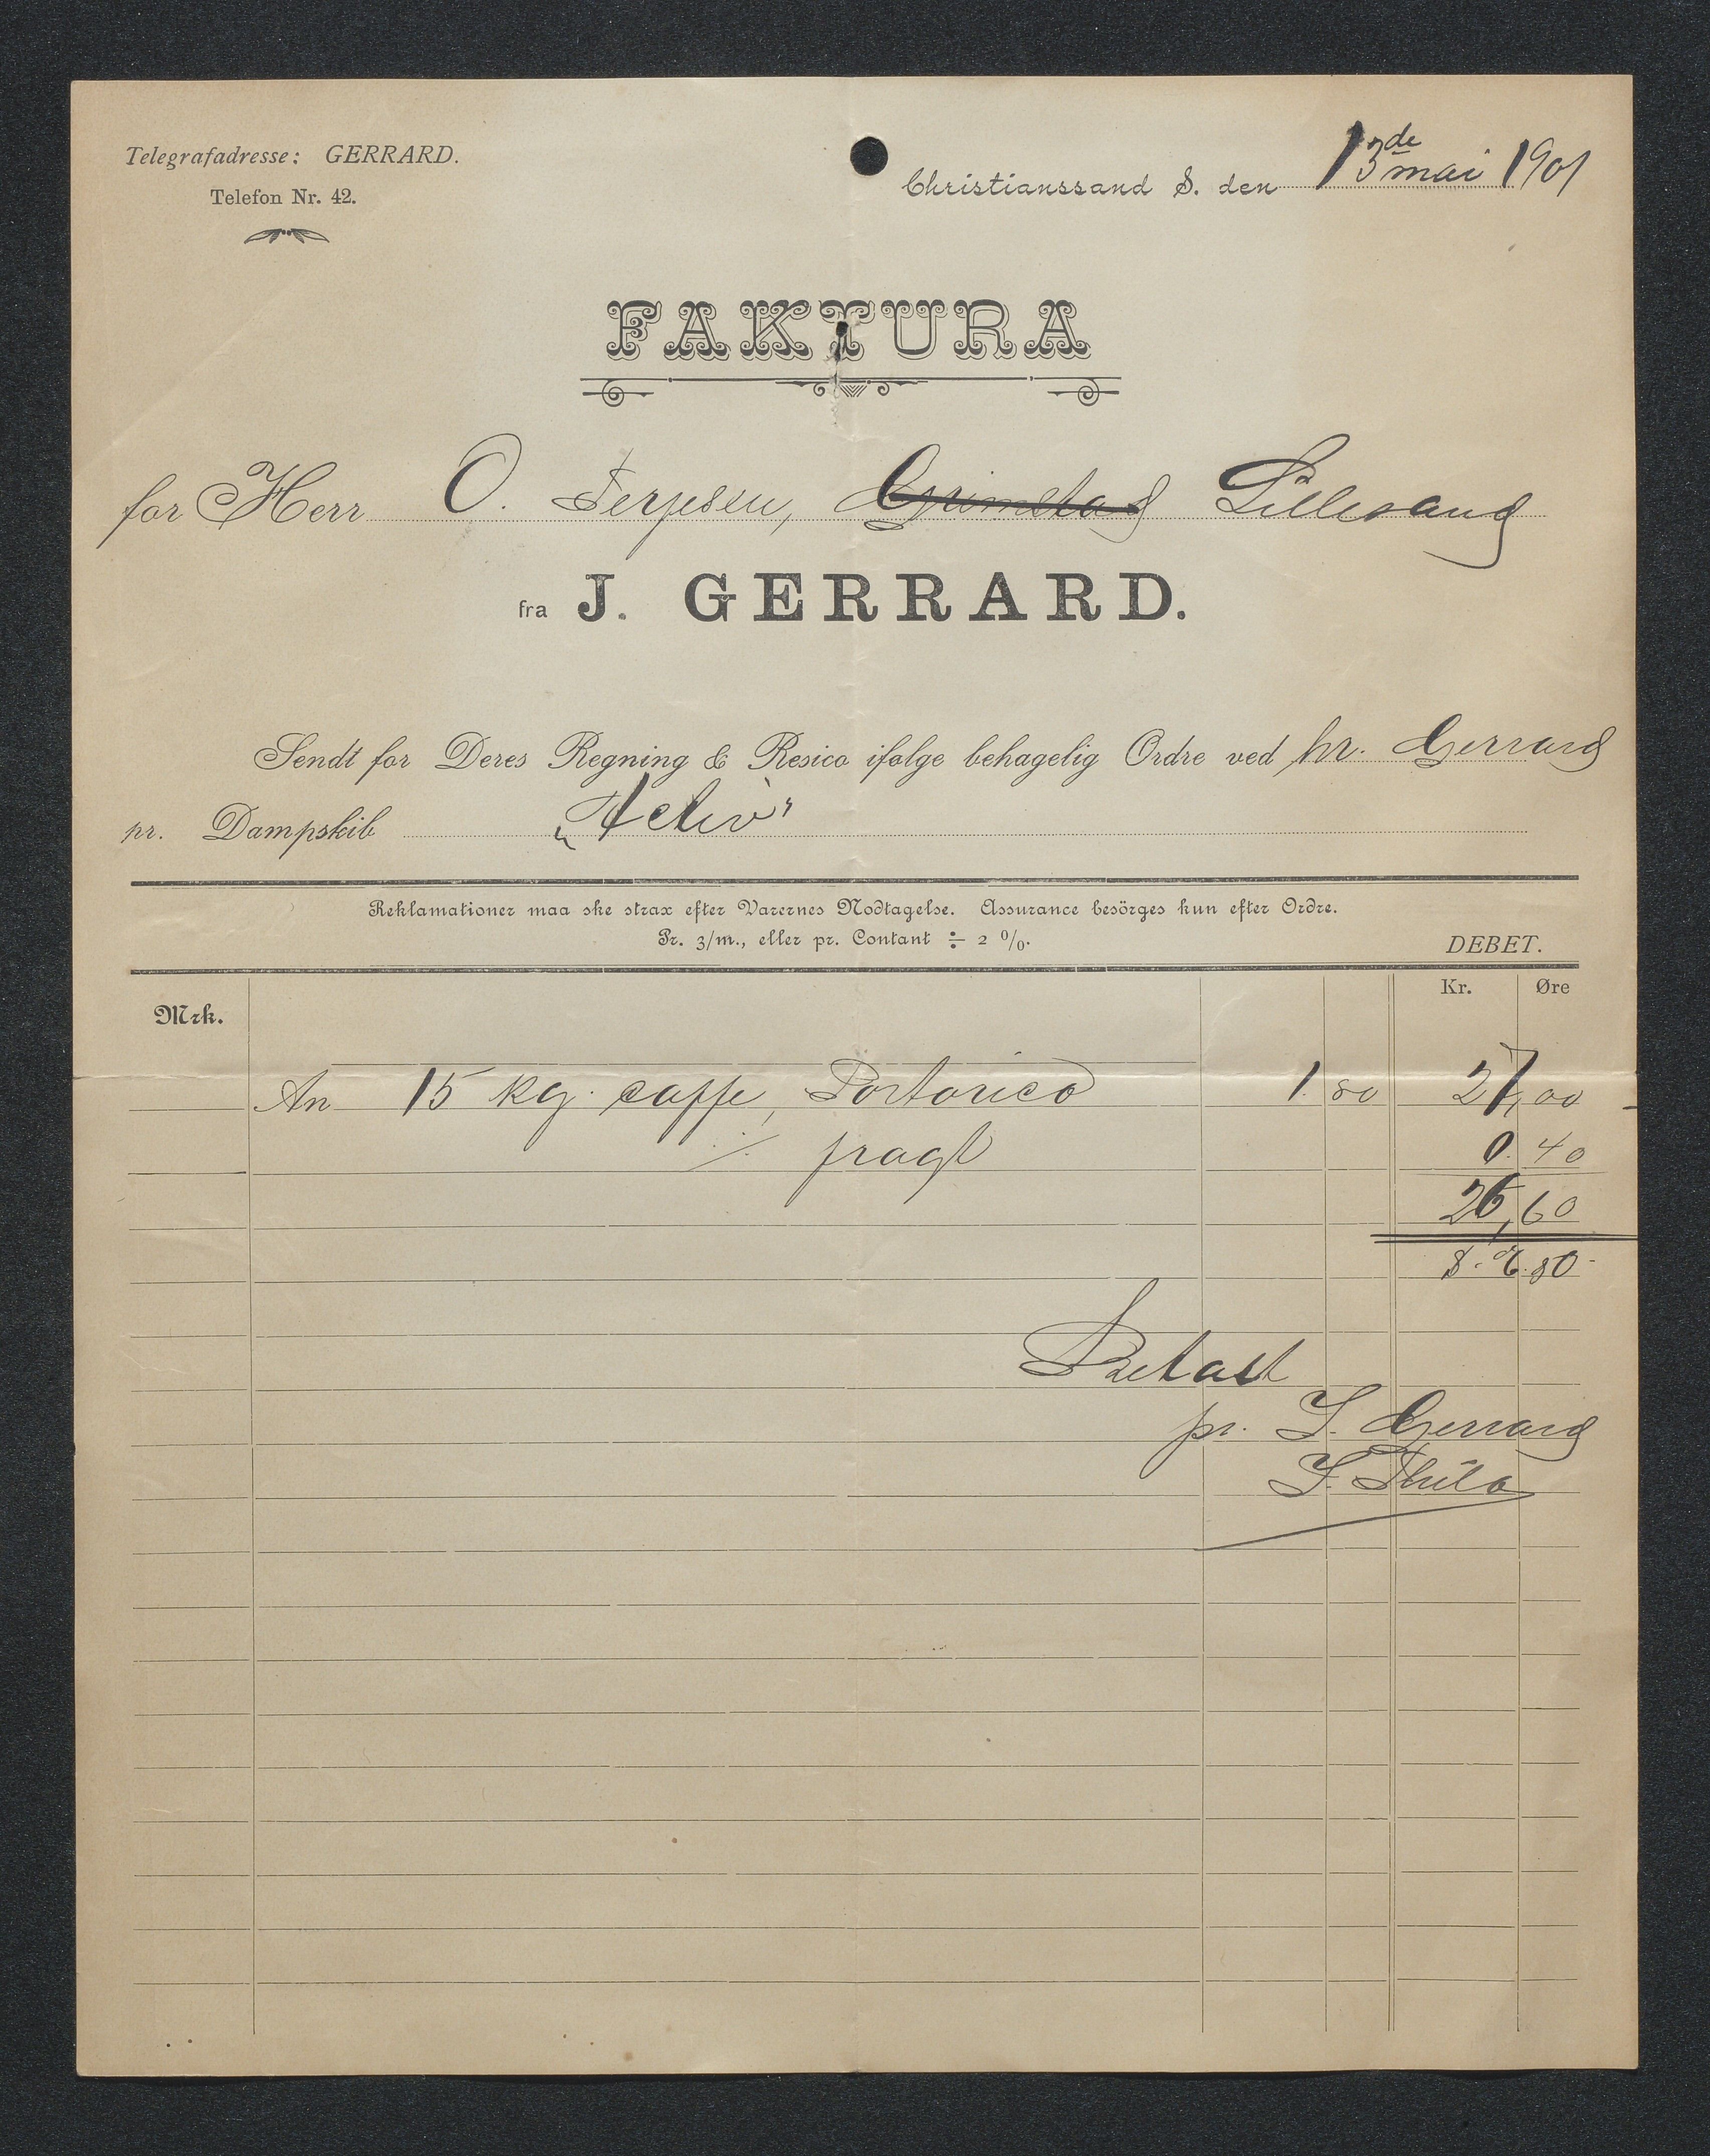 Telegrafadresse: GERRARD.
Telefon Nr. 42.
Christianssand S. den 13de mai 1901
FAKTURA
for Herr O. Terjesen, Grimstad Lillesand
fra J. GERRARD.
Sendt for Deres Regning & Resico ifølge behagelig Ordre ved hr. Gerrard
pr. Dampskib „Activ"
Reklamationer maa ske strax efter Varernes Modtagelse. Assurance besörges kun efter Ordre.
Pr. 3/m., eller pr. Contant ÷ 2 %.
DEBET.
Mrk. Kr. Øre
An 15 kg. caffe, Portorico 1.80 27,00
⁒ fragt 0.40
26,60
Betalt
pr. J. Gerrard